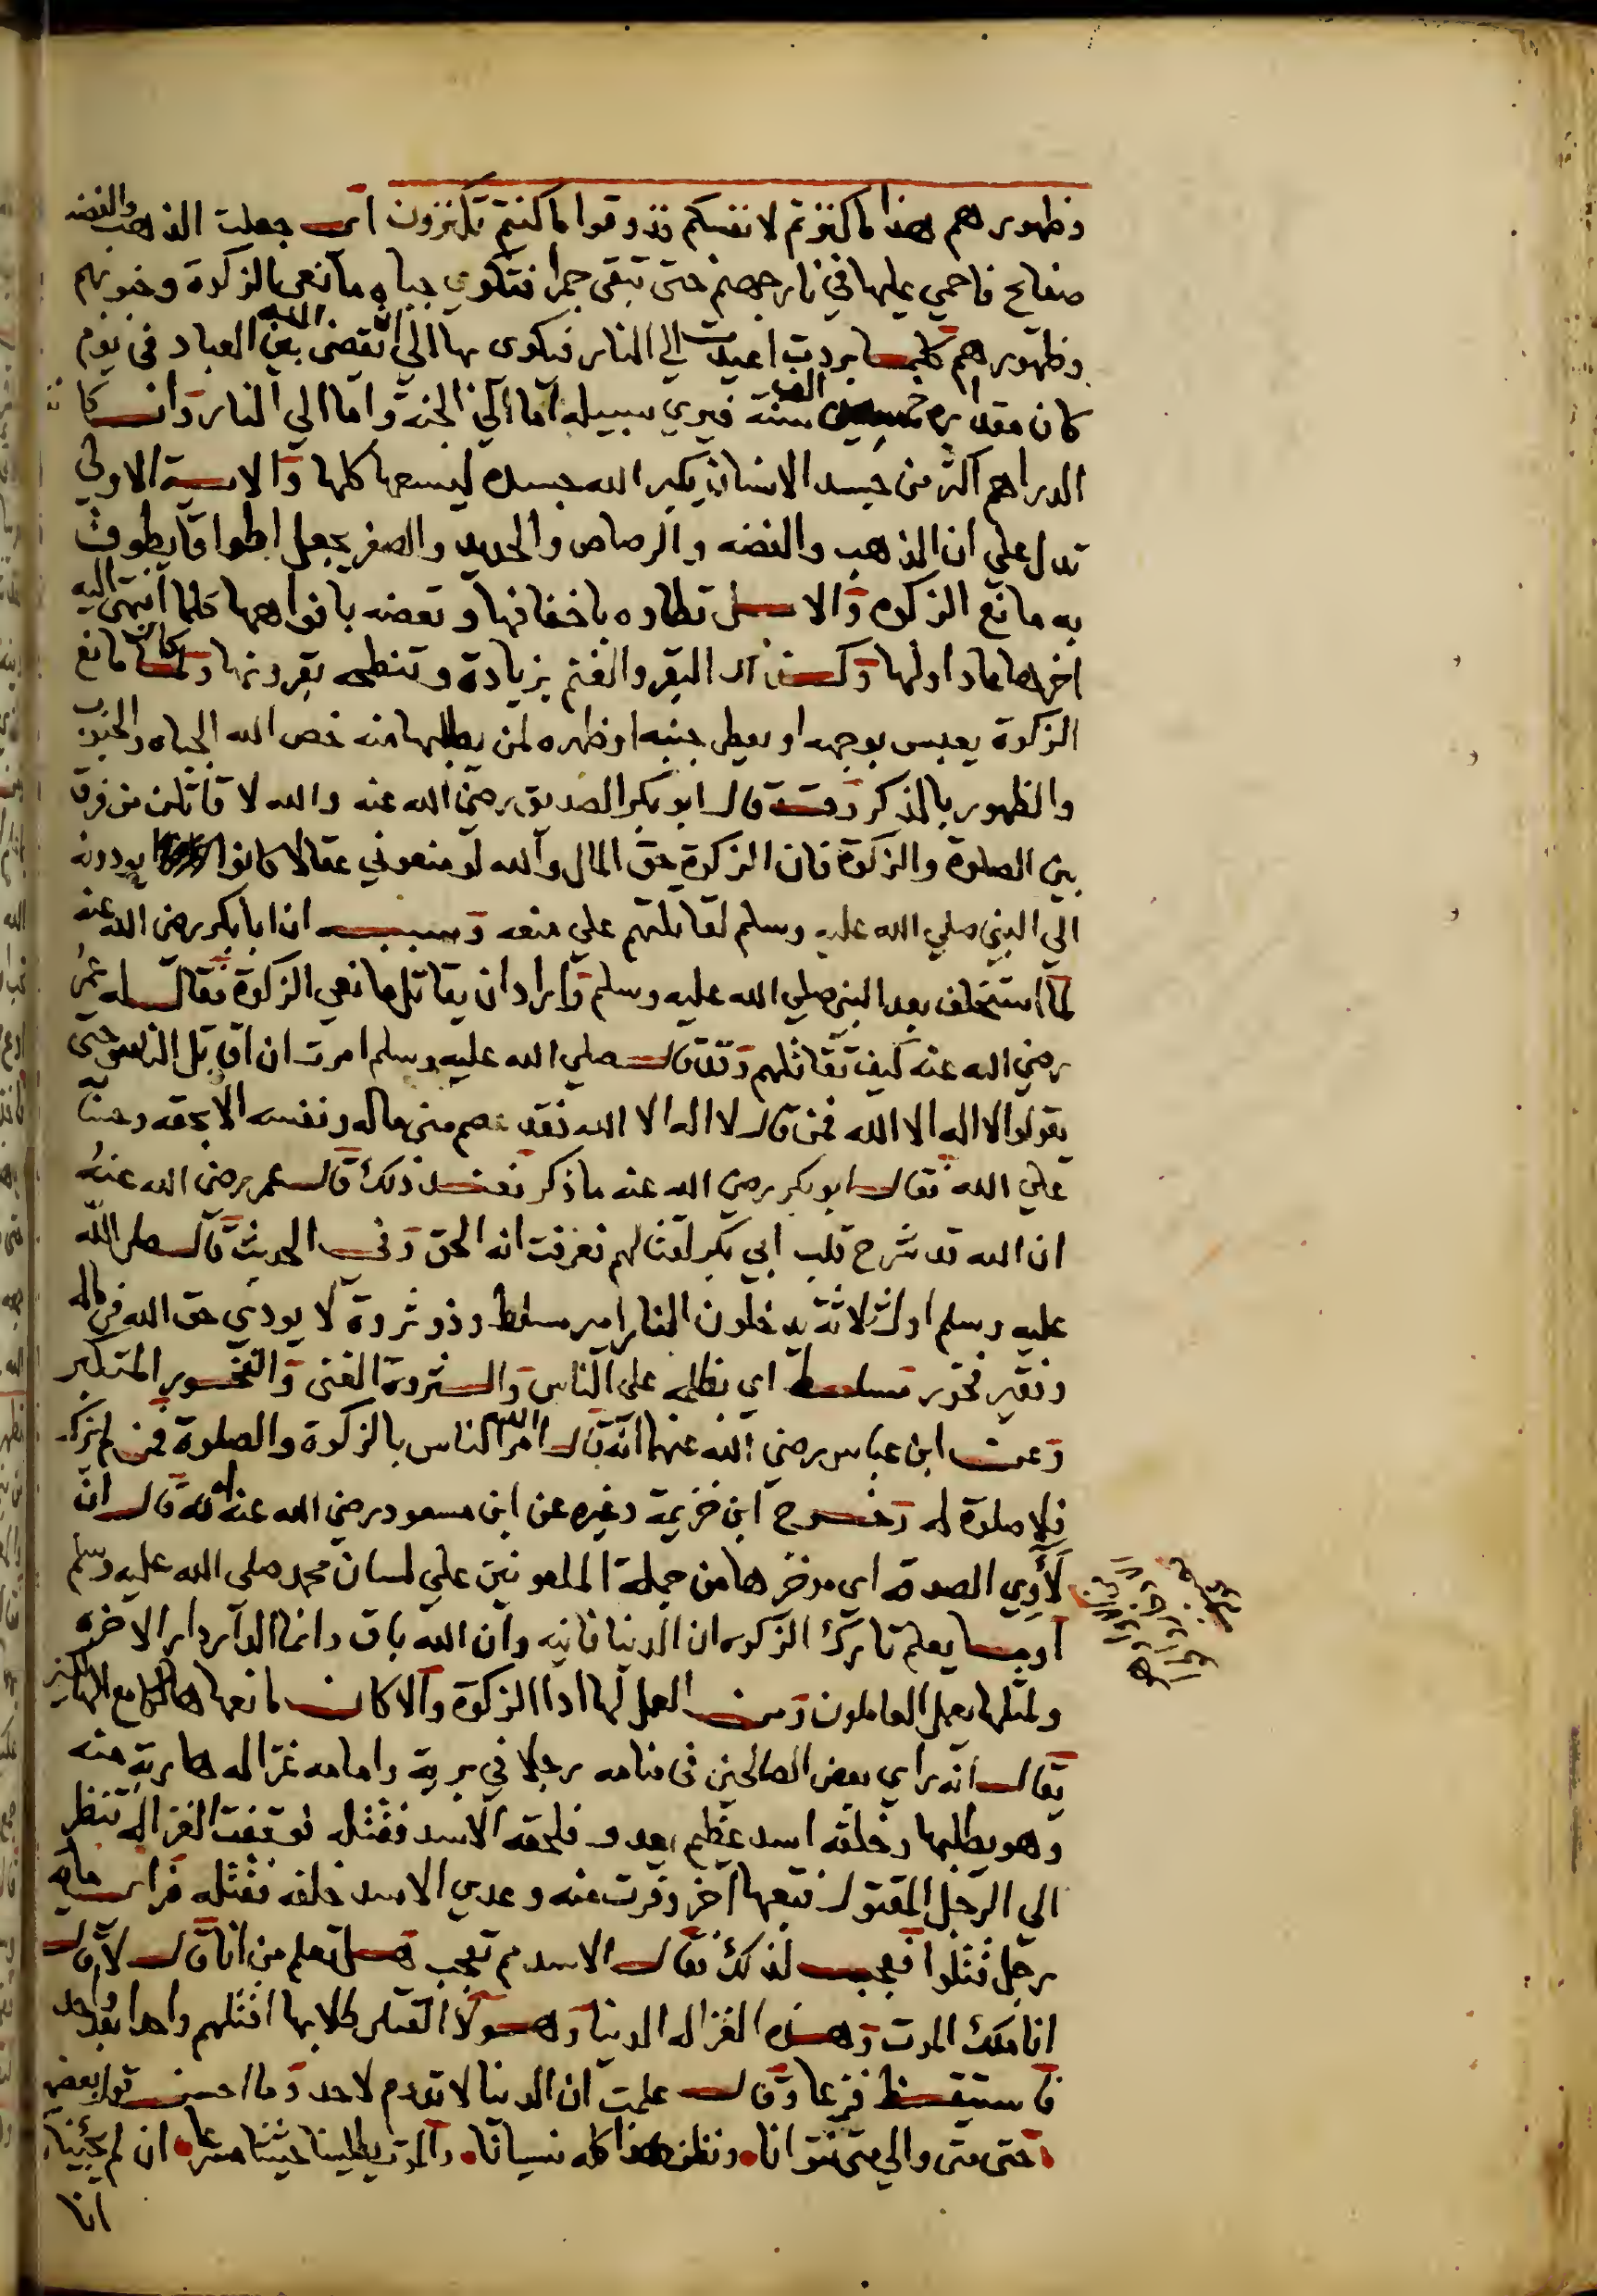 وظهورهم هذا ما كنزتم لانفسكم فذوقوا ما كنتم تكنزون اي جعلت الذهب والفضه
صفايح فاحمي عليها في نار جهنم حتى تبقى جمرا فتكوي جباه مانعي الزكوة وجنوبهم
وظهورهم كلما بردت اعيدت الي النار فيكوى بها الي ان يقضى الله بين العباد فى يوم
كان مقداره خمسين الف سنة فيري سبيله اما الي الجنة واما الي النار وان كانت
الدراهم اكثر من جسد الانسان يكبر الله جسده ليسعها كلها والاية الاولي
تدل علي ان الذهب والفضه والرصاص والحديد والصفر يجعل اطواقا يطوق
به مانع الزكوه والابل تطاوه باخفافها و تعضه بافواهها كلما انتهى اليه
اخرها عاد اولها وكذلك البقر والغنم بزيادة وتنطحه بقرونها ولما كان مانع
الزكوة يعبس بوجهه او يعطى جنبه او ظهره لمن يطلبها منه خص الله الجباه والجنوب
والظهور بالذكر وقد قال ابو بكر الصديق رضي الله عنه والله لا قاتلن من فرق
بين الصلوة والزكوة فان الزكوة حق المال والله لو منعوني عقالا كانوا يودونه
الي النبي صلي الله عليه وسلم لقاتلتهم علي منعه وسببه ان ابا بكر رضى الله عنه
لما استخلف بعد النبي صلي الله عليه وسلم واراد ان يقاتل مانعي الزكوة فقال له عمر
رضي الله عنه كيف تقاتلهم وقد قال صلي الله عليه وسلم امرت ان اقاتل الناس حتى
يقولوا لا اله الا الله فمن قال لا اله الا الله فقد عصم مني ماله ونفسه الا بحقه وحسابه
علي الله فقال ابو بكر رضي الله عنه ما ذكر فعند ذلك قال عمر رضى الله عنه
ان الله قد شرح قلب ابي بكر لقتالهم فعرفت انه الحق وفي الحديث قال صلى الله
عليه وسلم اول ثلاثة يدخلون النار امير مسلط وذو ثروة لا يودي حق الله في ماله
وفقير فخور مسلط اي بظلمه على الناس والثروة الغنى والفخور المتكبر
وعن ابن عباس رضي الله عنهما انه قال امر الله الناس بالزكوة والصلوة فمن لم يزك
فلا صلوة له وخرج ابن خزيمة وغيره عن ابن مسعود رضي الله عنه انه قال ان
لاوي الصدقة اي موخرها من جملة الملعونين علي لسان محمد صلى الله عليه وسلم
اوما يعلم تارك الزكوه ان الدنيا فانيه وان الله باق وانما الدار دار الاخره
ولمثلها يعمل العاملون ومن العمل لها اداا الزكوة والا كان مانعها هالكا مع الهالكين
يقال انه راي بعض الصالحين فى منامه رجلا في برية وامامه غزاله هاربة منه
وهو يطلبها وخلفه اسد عظيم يعدو فلحقه الاسد فقتله فوقفت الغزاله تنظر
الي الرجل المقتول فتبعها آخر وفرت عنه وعدي الاسد خلفه فقتله فراى مايه
رجل قتلوا فعجب لذلك فقال الاسد مم تعجب هل تعلم من انا قال لا قال
انا ملك الموت وهذه الغزاله الدنيا وهولا القتلى طلابها اقتلهم واحدا بعد واحد
فاستيقظ فزعا وقال علمت ان الدنيا لا تدوم لاحد وما احسن قول بعضهم
حتى متى والي متى نتوانا ونظن هذا كله نسيانا والموت يطلبنا حثيثا مسرعا ان لم يجينا
انا